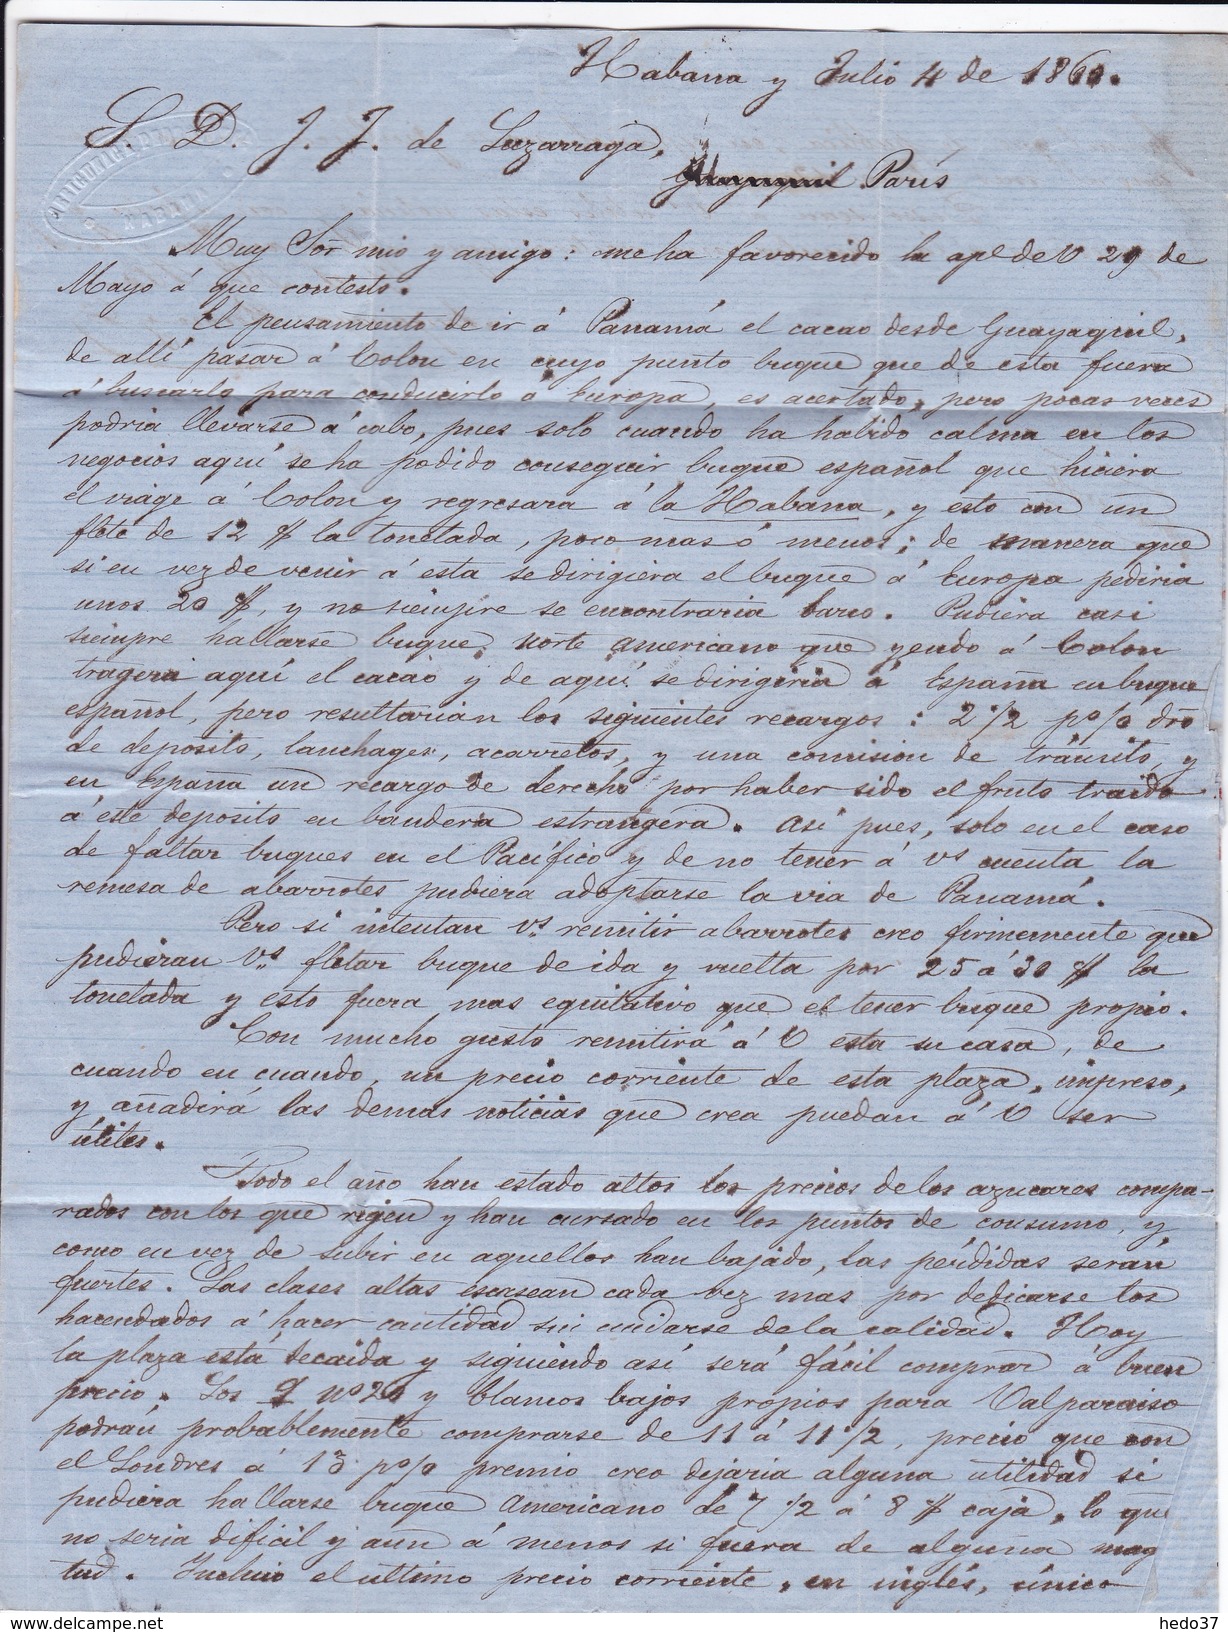 Habana y Julio 4 de 1860.
S. D. J. J. de Luzarraga,
Guayaquil Paris
HABANA
Muy Sor mio y amigo: me ha favorecido la apl de V 29 de
Mayo á que contesto.
El pensamiento de ir á Panamá el cacao desde Guayaquil,
de allí pasar á Colon en cuyo punto buque que de esta fuera
á buscarlo para conducirlo á Europa, es acertado, pero pocas veces
podria llevarse á cabo, pues solo cuando ha habido calma en los
negocios aquí se ha podido conseguir buque español que hiciera
el viage á Colon y regresara á la Habana, y esto con un
flete de 12 $ la tonelada, poco mas ó menos; de manera que
si en vez de venir á esta se dirigiera el buque á Europa pediria
unos 20 $, y no siempre se encontraria barco. Pudiera casi
siempre hallarse buque norte americano que yendo á Colon
trageria aquí el cacao y de aquí se dirigiria á España en buque
español, pero resultarian los siguientes recargos: 2 1/2 p% dro
de deposito, lanchages, acarretos, y una comision de tránsito, y
en España un recargo de derecho por haber sido el fruto traido
á este deposito en bandera estrangera. Asi pues, solo en el caso
de faltar buques en el Pacífico y de no tener á Vs cuenta la
remesa de abarrotes pudiera adoptarse la via de Panamá.
Pero si intentan Vs remitir abarrotes creo firmemente que
pudieran Vs fletar buque de ida y vuelta por 25 á 30 $ la
tonelada y esto fuera mas equitativo que el tener buque propio.
Con mucho gusto remitirá á V esta su casa, de
cuando en cuando, un precio corriente de esta plaza, impreso,
y añadirá las demas noticias que crea puedan á V ser
útiles.
Todo el año han estado altos los precios de los azucares compa-
rados con los que rigen y han cursado en los puntos de consumo, y,
como en vez de subir en aquellos han bajado, las pérdidas serán
fuertes. Las clases altas escasean cada vez mas por dedicarse los
hacendados á hacer cantidad sin cuidarse de la calidad. Hoy
la plaza está decaida y siguiendo asi será fácil comprar á buen
precio. Los q no 20 y blancos bajos propios para Valparaiso
podrán probablemente comprarse de 11 á 11 1/2, precio que con
el Londres á 13 p% premio creo dejaria alguna utilidad si
pudiera hallarse buque Americano de 7 1/2 á 8 $ caja, lo que
no seria dificil y aun á menos si fuera de alguna mag
tud. Incluio el ultimo precio corriente, en inglés, único
hedo37